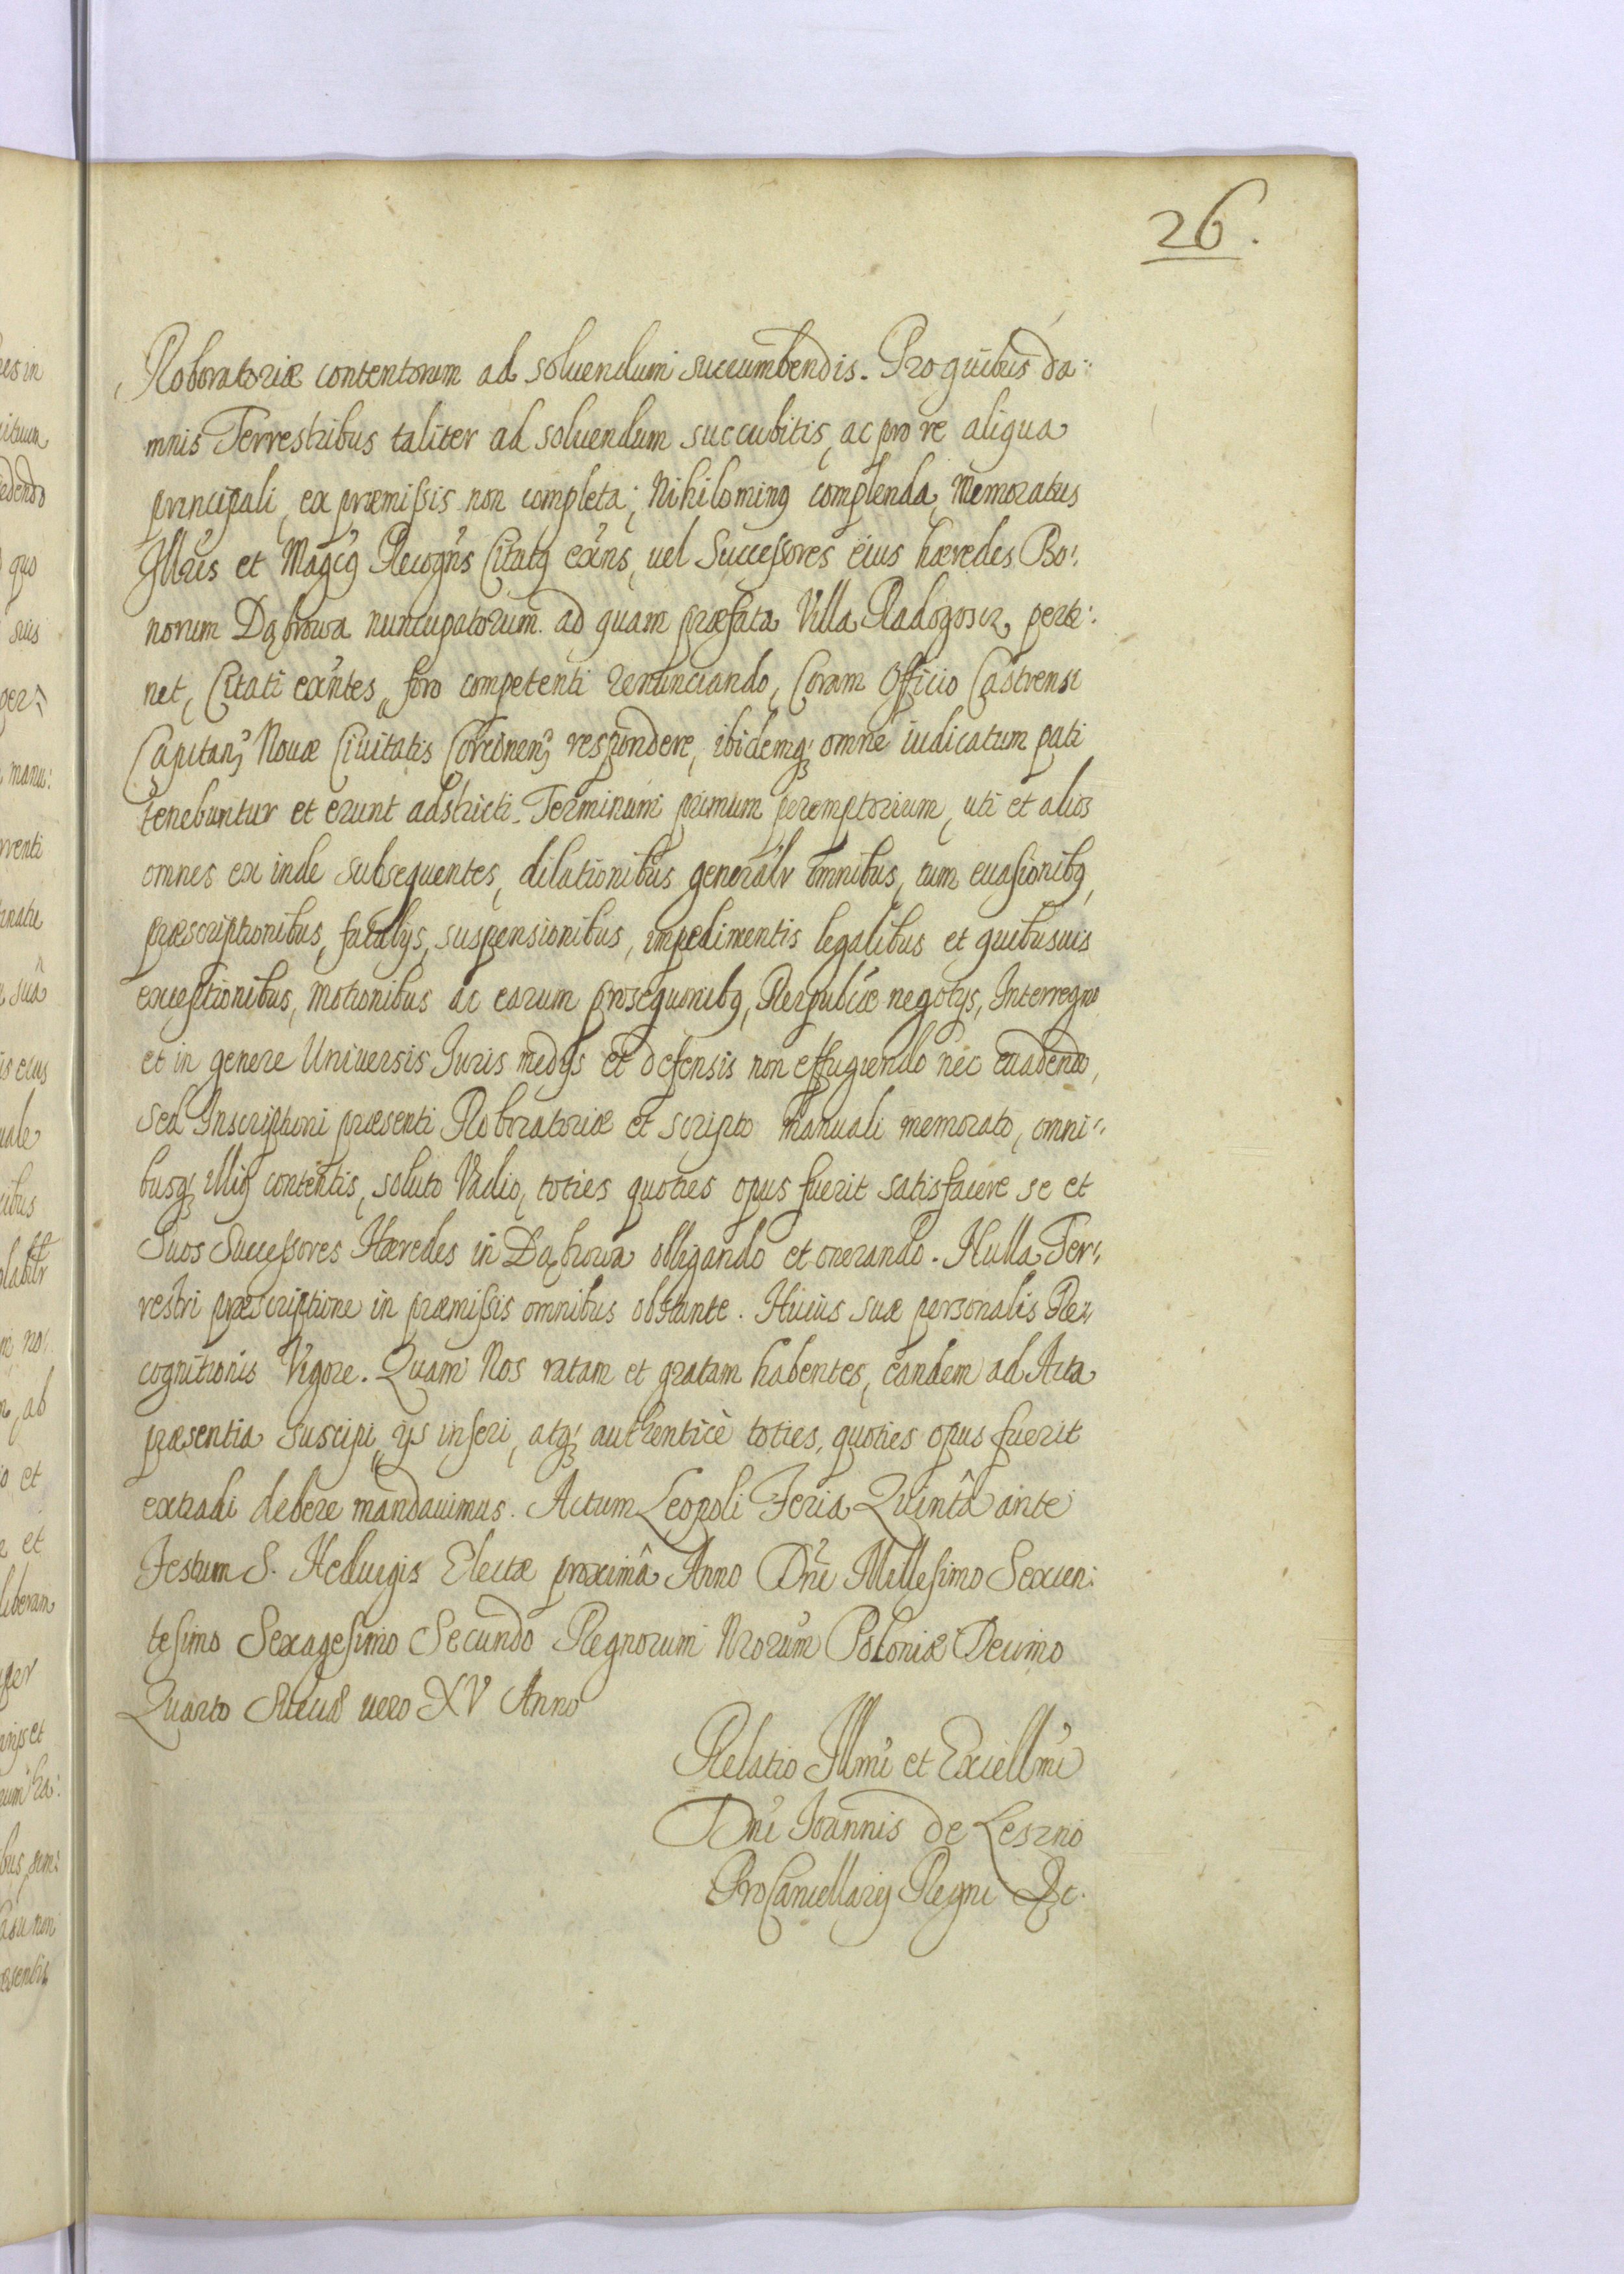 26.
Roboratoriæ contentorum ad soluendum succumbendis. Pro quibus da:
mnis Terrestribus taliter ad soluendum succubitis, ac pro re aliqua
principali, ex præmissis non completa; Nihilominꝰ complenda, Memoratus
Illris et Magcꝰ Recogns Citatꝰ exns, uel Successores eius hæredes Bo:
norum Dąbrowa nuncupatorum ad quam præfata Villa Radogoscz, perti:
net, Citati exntes, foro competenti renunciando, Coram Officio Castrensi
Capitan; Nouæ Ciuitatis Corcinen; respondere, ibidemq; omne iudicatum pati
tenebuntur et erunt adstricti. Terminum primum peremptorium, uti et alios
omnes ex inde subsequentes, dilationibus generalr omnibus, tum euasionibꝰ,
præscriptionibus, fatalijs, suspensionibus, impedimentis legalibus et quibusuis
exceptionibus, motionibus ac earum prosequonibꝰ, Reipublicæ negotijs, Interregno
et in genere Universis Juris medijs et defensis non effugiendo nec euadendo,
sed Inscriptioni præsenti Roboratoriæ et scripto manuali memorato, omni:
busq; illiꝰ contentis, soluto Vadio, toties quoties opus fuerit satisfacere se et
Suos Successores Hæredes in Dąbrowa obligando et onerando. Nulla Ter:
restri præscriptione in præmissis omnibus obstante. Huius suæ personalis Re:
cognitionis Vigore. Quam Nos ratam et gratam habentes, eandem ad Acta
præsentia suscipi, ijs inseri, atq; authenticè toties, quoties opus fuerit
extradi debere mandauimus. Actum Leopoli Feria Quintâ ante
Festum S. Heduigis Electæ proximâ Anno Dni Millesimo Sexcen:
tesimo Sexagesimo Secundo Regnorum Nrorum Poloniæ Decimo
Quarto Sueciæ uero XV Anno
Relatio Illmi et Excellmi
Dni Joannis de Leszno
ProCancellarij Regni &c.